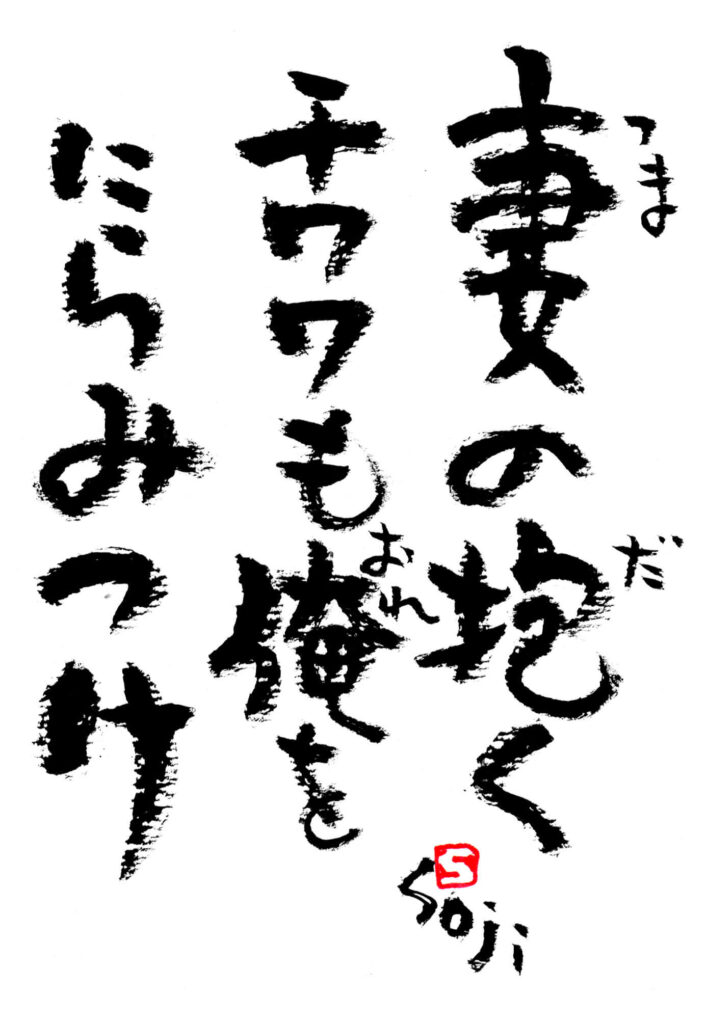 妻の抱く
つま
だ
チワワも俺を
おれ
にらみつけ
S
Soji